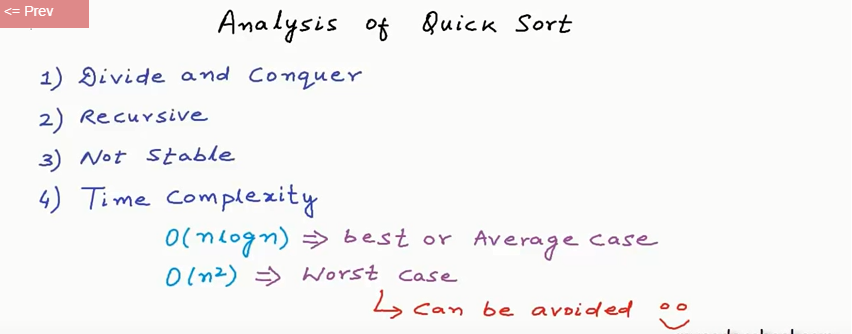 <= Prev
Analysis of Quick Sort
1) Divide and Conquer
2) Recursive
3) Not Stable
4) Time Complexity
O(nlogn) ⇒ best or Average case
O(n²) ⇒ Worst case
↳ can be avoided